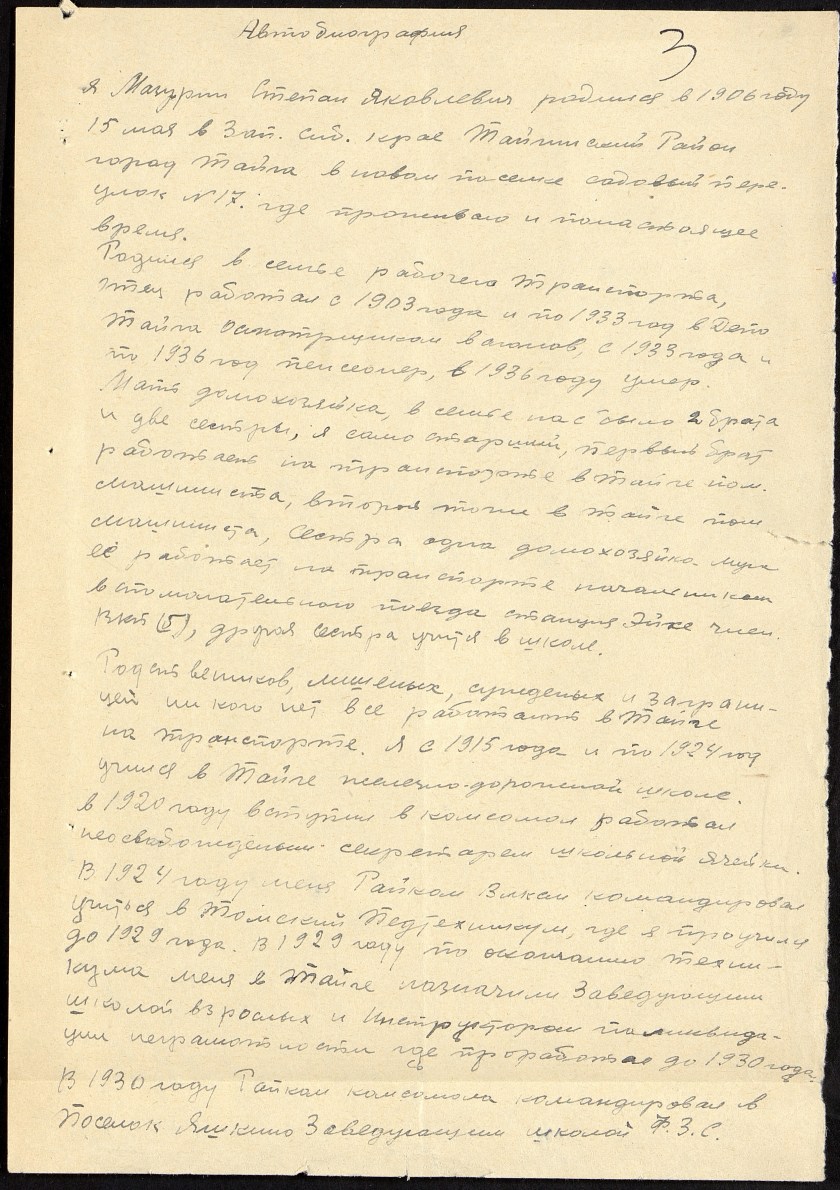 Автобиография
3
Я Мазурин Степан Яковлевич родился в 1906 году
15 мая в Зап. сиб. крае Тайгинский Район
город Тайга в новом поселке садовый пере-
улок №17. где проживаю и по настоящее
время.
Родился в семье рабочего транспорта,
отец работал с 1903 года и по 1933 год в Депо
Тайга осмотрщиком вагонов, с 1933 года и
по 1936 год пенсеонер, в 1936 году умер.
Мать домохозяйка, в семье нас было 2 брата
и две сестры, я само старший, первый брат
работает на транспорте в Тайге пом.
машиниста, второй тоже в Тайге пом
машиниста, Сестра одна домохозяйка муж
её работает на транспорте начальником
вспомогательного поезда станция член.
ВКП(б), другая сестра учится в школе.
Родственников, лишеных, сужденых и заграни-
цей ни кого нет все работают в Тайге
на транспорте. Я с 1915 года и по 1924 год
учился в Тайге железно-дорожной школе.
в 1920 году вступил в комсомол работал
неосвобожденым секретарем школьной ячейки.
В 1924 году меня Райком Влксм командировал
учиться в Томский Педтехникум, где я проучился
до 1929 года. В 1929 году по окончанию техни-
кума меня в Тайге назначили Заведующим
школой взрослых и Инструктором по ликвида-
ции неграмотности где проработал до 1930 года.
В 1930 году Райком комсомола командировал в
Поселок Яшкино Заведующим школой Ф.З.С.